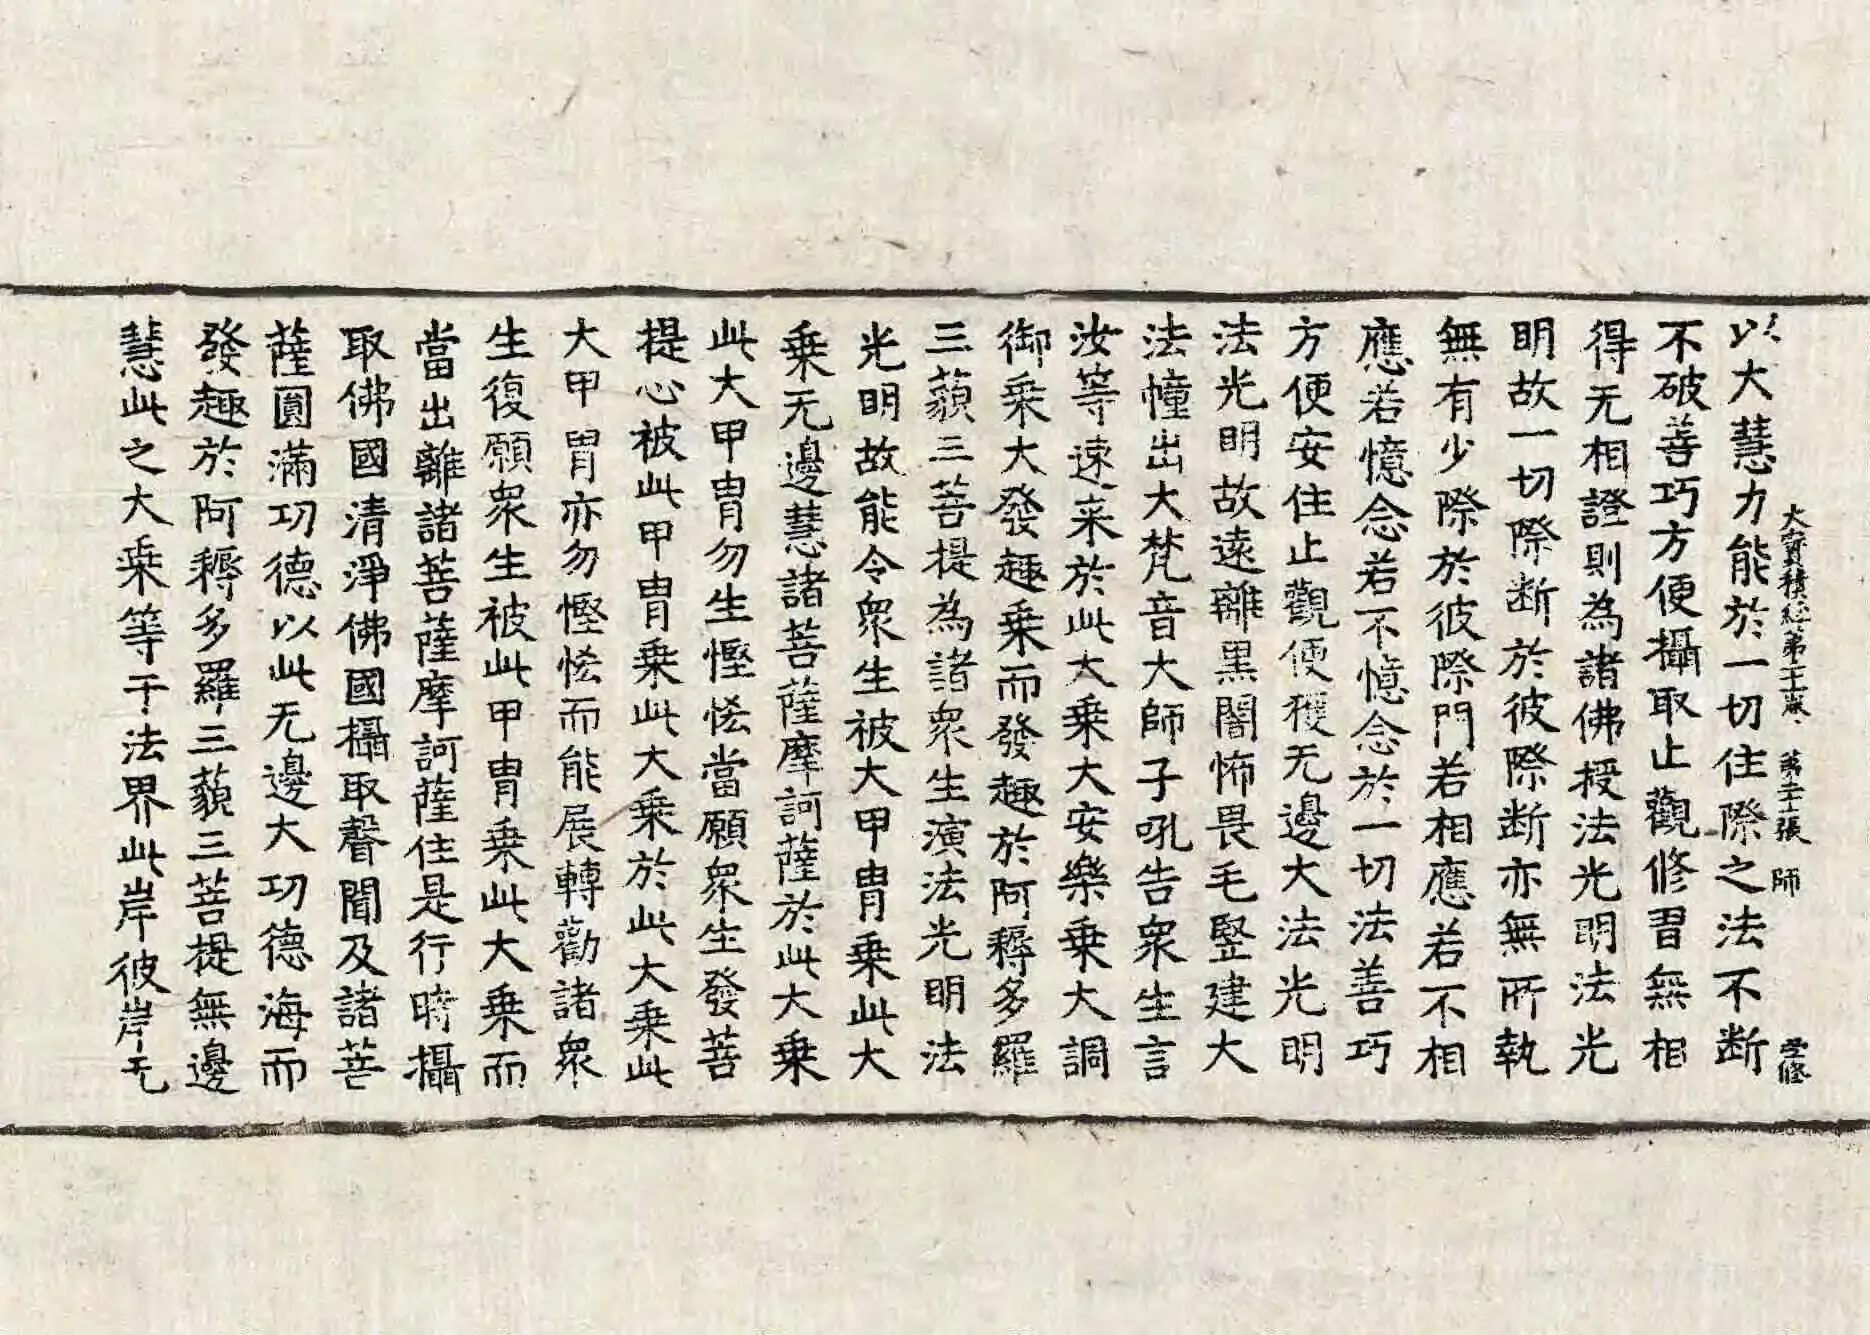 大寶積經第二十二卷 第二十張 師
以大慧力能於一切住際之法不断
不破善巧方便攝取止觀修習無相
得无相證則為諸佛授法光明法光
明故一切際断於彼際断亦無所執
無有少際於彼際門若相應若不相
應若憶念若不憶念於一切法善巧
方便安住止觀便獲无邊大法光明
法光明故遠離黒闇怖畏毛竪建大
法幢出大梵音大師子吼告衆生言
汝等速来於此大乗大安樂乗大調
御乗大發趣乗而發趣於阿耨多羅
三藐三菩提為諸衆生演法光明法
光明故能令衆生被大甲胄乗此大
乗无邊慧諸菩薩摩訶薩於此大乗
此大甲胄勿生慳悋當願衆生發菩
提心被此甲胄乗此大乗於此大乗此
大甲胄亦勿慳悋而能展轉勸諸衆
生復願衆生被此甲胄乗此大乗而
當出離諸菩薩摩訶薩住是行時攝
取佛國清淨佛國攝取聲聞及諸菩
薩圓滿功德以此无邊大功德海而
發趣於阿耨多羅三藐三菩提無邊
慧此之大乗等于法界此岸彼岸无